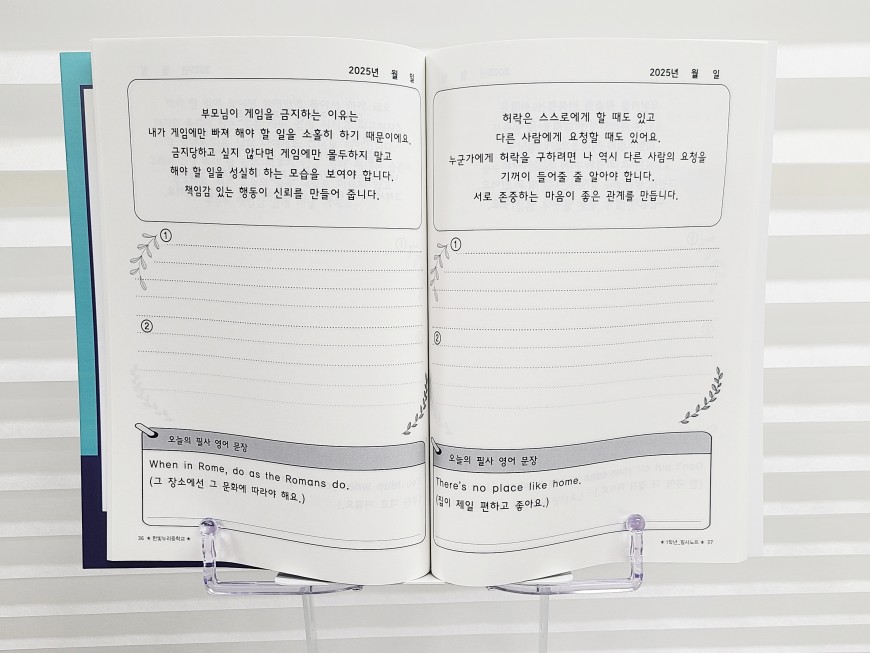 2025년 월 일
부모님이 게임을 금지하는 이유는
내가 게임에만 빠져 해야 할 일을 소홀히 하기 때문이에요.
금지당하고 싶지 않다면 게임에만 몰두하지 말고
해야 할 일을 성실히 하는 모습을 보여야 합니다.
책임감 있는 행동이 신뢰를 만들어 줍니다.
①
②
오늘의 필사 영어 문장
When in Rome, do as the Romans do.
(그 장소에선 그 문화에 따라야 해요.)
36 ★ 한빛누리중학교 ★
2025년 월 일
허락은 스스로에게 할 때도 있고
다른 사람에게 요청할 때도 있어요.
누군가에게 허락을 구하려면 나 역시 다른 사람의 요청을
기꺼이 들어줄 줄 알아야 합니다.
서로 존중하는 마음이 좋은 관계를 만듭니다.
①
②
오늘의 필사 영어 문장
There's no place like home.
(집이 제일 편하고 좋아요.)
★ 1학년_필사노트 ★ 37